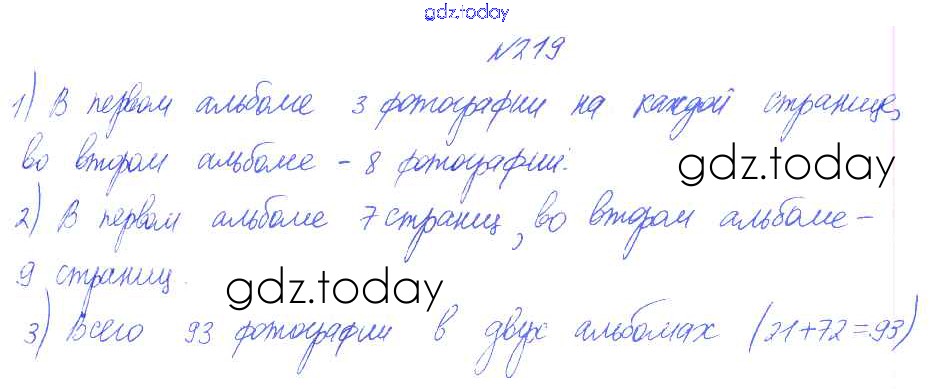 gdz.today
№219
1) В первом альбоме 3 фотографии на каждой странице,
во втором альбоме - 8 фотографий.
gdz.today
2) В первом альбоме 7 страниц, во втором альбоме -
9 страниц.
gdz.today
3) Всего 93 фотографии в двух альбомах (21+72=93)